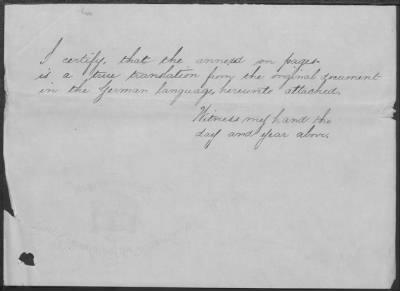 I certify, that the annexed on pages.
is a true translation from the original document
in the German language, hereunto attached.
Witness my hand the
day and year above.